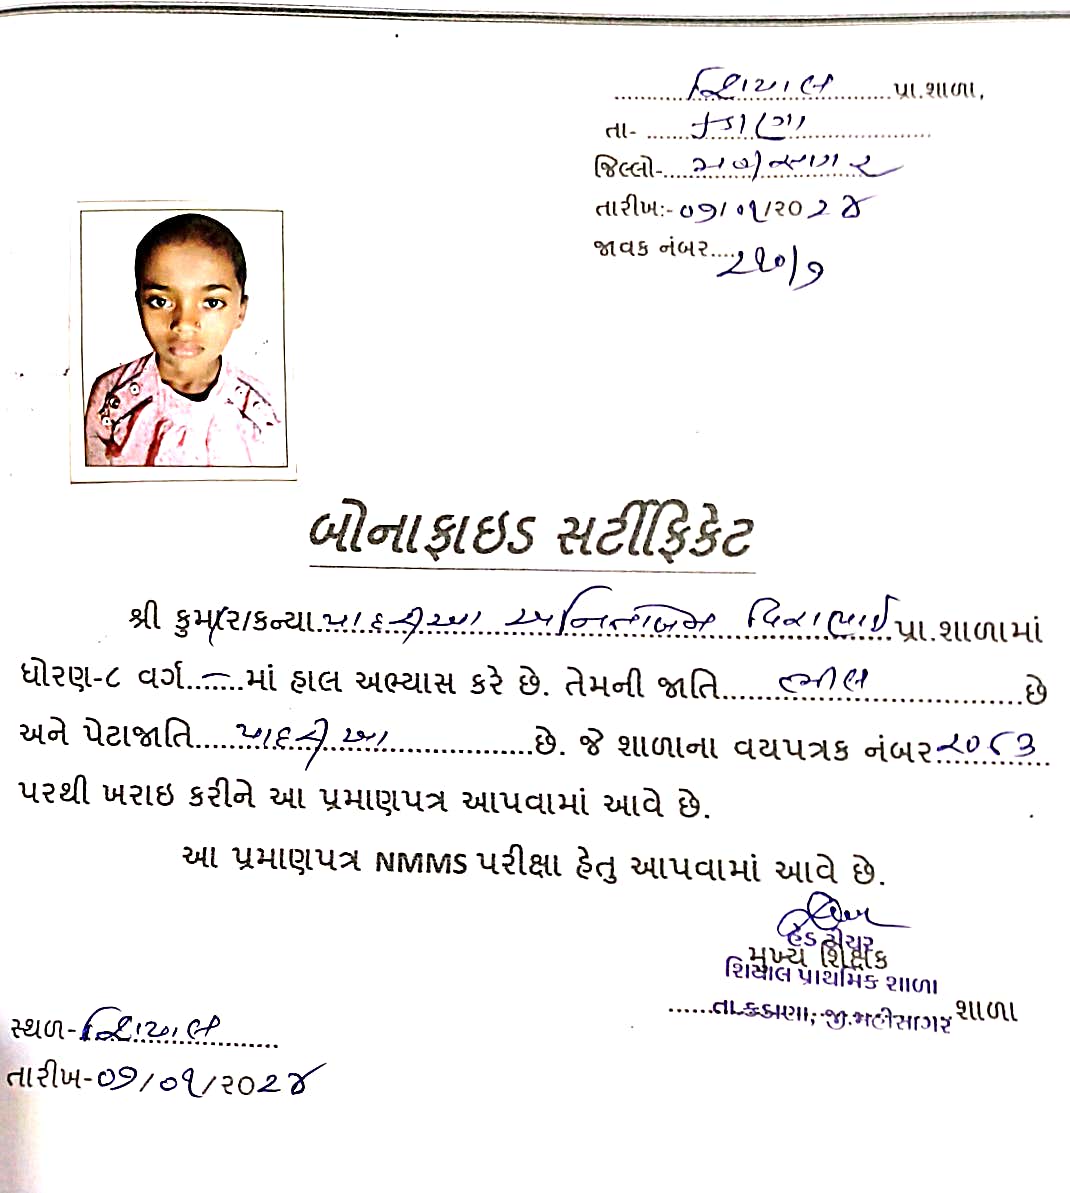 શિયાલ પ્રા.શાળા,
તા- કડાણા
જિલ્લો- મહીસાગર
તારીખ:- ૦૭/૦૧/૨૦૨૪
જાવક નંબર.... ૨૧૦/૭
બોનાફાઇડ સર્ટીફિકેટ
શ્રી કુમાર/કન્યા. પાદરીઆ અનિતાબેન દિવાભાઈ પ્રા.શાળામાં
ધોરણ-૮ વર્ગ..–..માં હાલ અભ્યાસ કરે છે. તેમની જાતિ ભીલ છે
અને પેટાજાતિ પાદરીઆ છે. જે શાળાના વયપત્રક નંબર ૨૦૮૩
પરથી ખરાઇ કરીને આ પ્રમાણપત્ર આપવામાં આવે છે.
આ પ્રમાણપત્ર NMMS પરીક્ષા હેતુ આપવામાં આવે છે.
હેડ ટીચર
મુખ્ય શિક્ષક
શિયાલ પ્રાથમિક શાળા
તા.કડાણા, જી.મહીસાગર શાળા
સ્થળ- શિયાલ
તારીખ- ૦૭/૦૧/૨૦૨૪